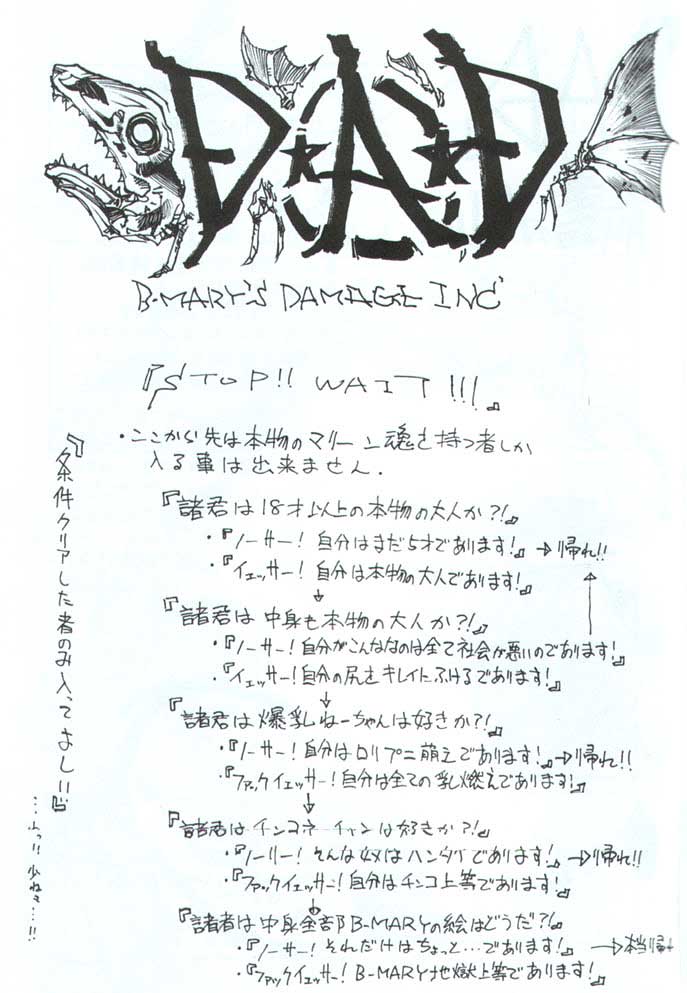 D★A★D
B-MARY'S DAMAGE INC
『STOP!! WAIT!!!』
・ここから先は本物のマリーン魂を持つ者しか
入る事は出来ません.
『諸君は18才以上の本物の大人か?!』
・『ノーサー! 自分はまだ5才であります!』→帰れ!!
・『イエッサー! 自分は本物の大人であります!』
↓
『諸君は中身も本物の大人か?!』
・『ノーサー! 自分がこんななのは全て社会が悪いのであります!』
・『イエッサー! 自分の尻をキレイにふけるであります!』
↓
『諸君は爆乳ねーちゃんは好きか?!』
・『ノーサー! 自分はロリプニ萌えであります!』→帰れ!!
・『ファックイエッサー! 自分は全ての乳燃えであります!』
↓
『諸君はチンコネーチャンは好きか?!』
・『ノーサー! そんな奴はハンタイであります!』→帰れ!!
・『ファックイエッサー! 自分はチンコ上等であります!』
↓
『諸君は中身全部B-MARYの絵はどうだ?!』
・『ノーサー! それだけはちょっと…であります!』→本当帰れ
・『ファックイエッサー! B-MARY地獄上等であります!』
『条件クリアした者のみ入ってよし!!』
…ふっ!! 少ねぇ…!!